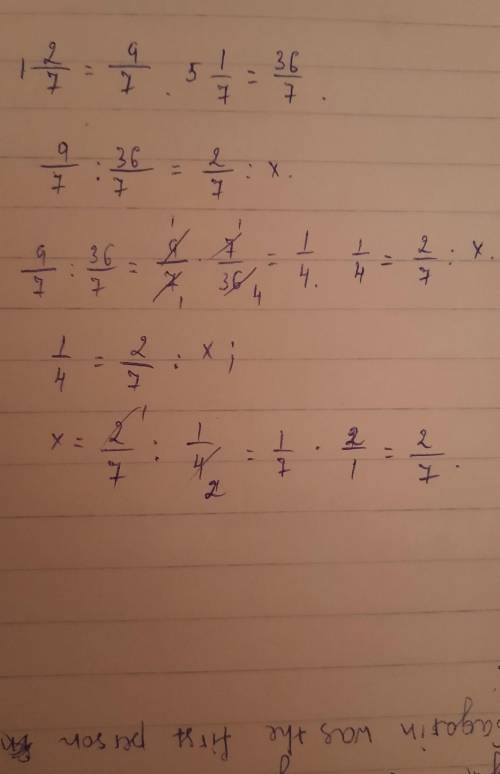 1 2/7 = 9/7 . 5 1/7 = 36/7 .
9/7 : 36/7 = 2/7 : x.
9/7 : 36/7 = 9/7 · 7/36 = 1/4. 1/4 = 2/7 : x.
1/4 = 2/7 : x;
x = 2/7 : 1/4 = 1/7 · 2/1 = 2/7 .
gagarin was the first person